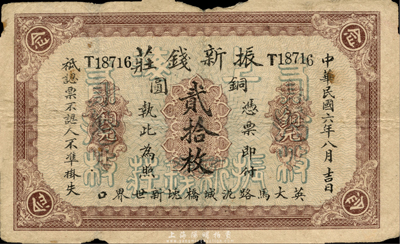 振新錢莊
T18716
T18716
中華民國六年八月吉日
憑票即付
銅圓
貳拾枚
執此為照
祇認票不認人不準掛失
英大馬路泥城橋堍新世界口